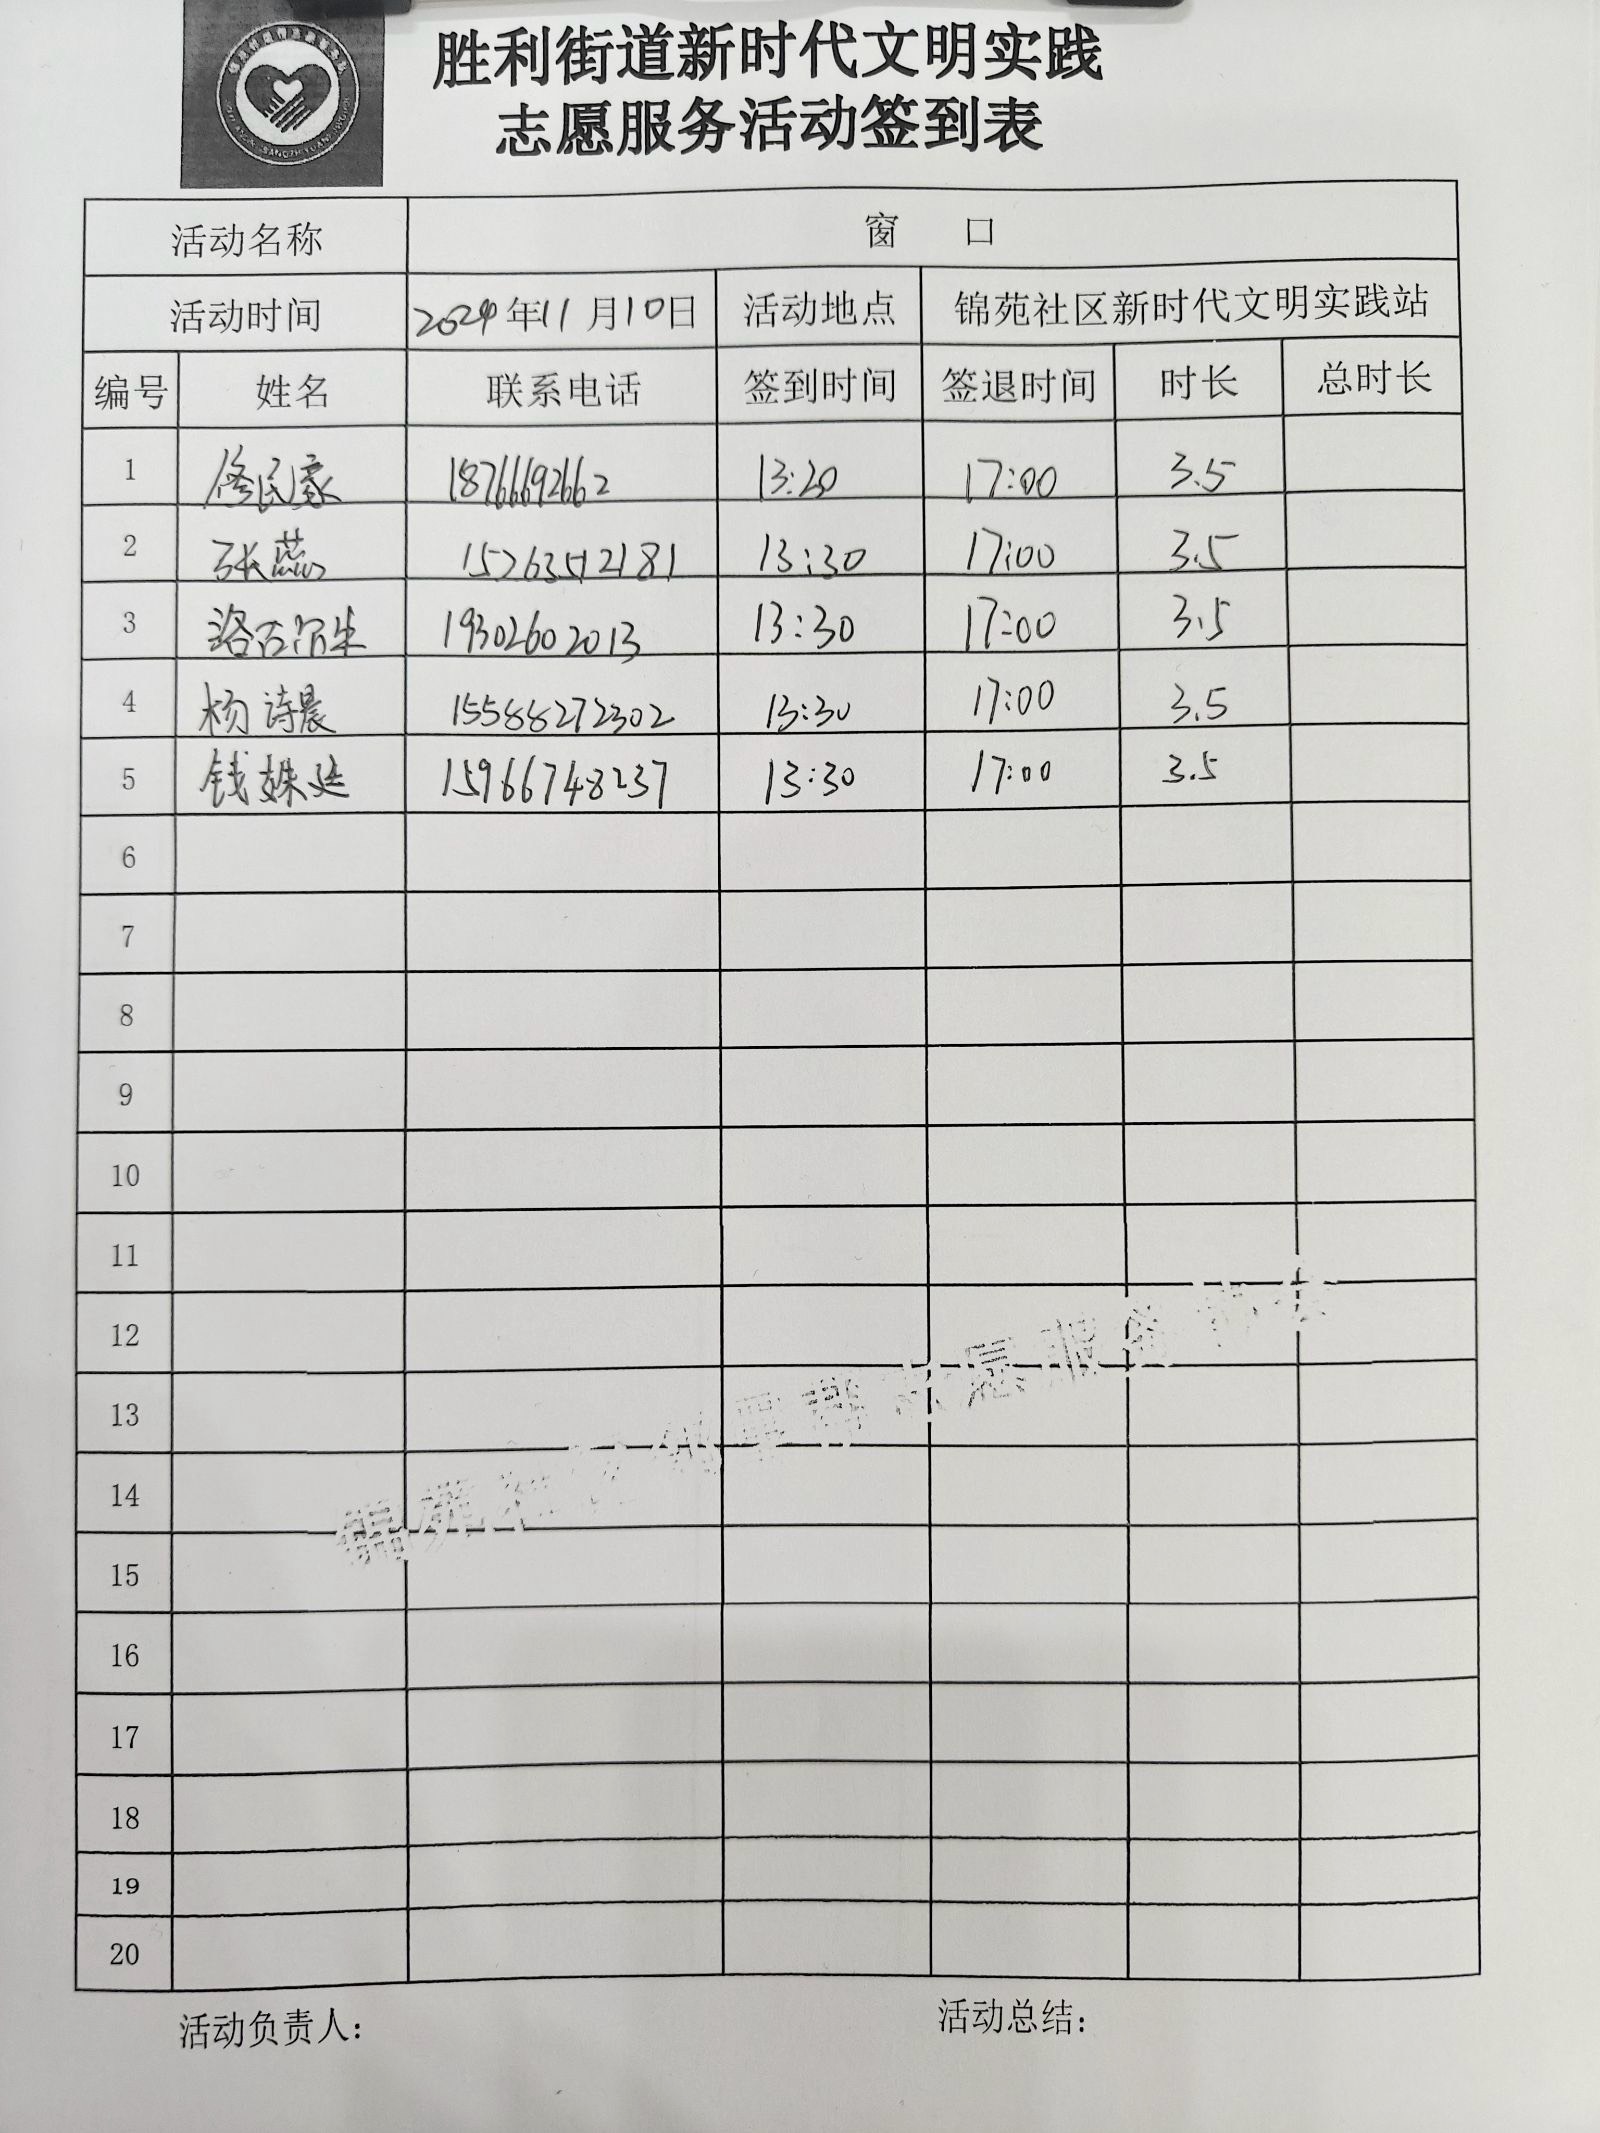 胜利街道新时代文明实践
志愿服务活动签到表
活动名称 窗 口
活动时间 2024年11月10日 活动地点 锦苑社区新时代文明实践站
编号 姓名 联系电话 签到时间 签退时间 时长 总时长
1 修民豪 18766692662 13:20 17:00 3.5
2 张蕊 15263512181 13:30 17:00 3.5
3 洛古尔生 19302602013 13:30 17:00 3.5
4 杨诗晨 15588272302 13:30 17:00 3.5
5 钱姝廷 15966748237 13:30 17:00 3.5
6
7
8
9
10
11
12
13
14
15
16
17
18
19
20
活动负责人： 活动总结：